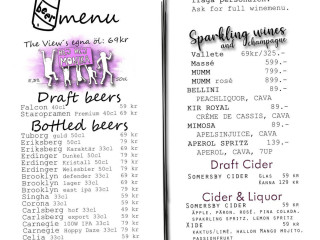 beer menu
The View's egna öl: 69kr
Draft beers
Falcon 40cl 59 kr
Staropramen Premium 40cl 69 kr
Bottled beers
Tuborg gold 50cl
Eriksberg 50cl
Eriksberg Karaktär 33cl
Erdinger Dunkel 50cl
Erdinger Kristall 50cl
Erdinger Weissbier 50cl
Brooklyn defender 33cl
Brooklyn lager 33cl
Brooklyn east ipa 33cl
Singha 33cl
Corona 33cl
Carlsberg hof 33cl
Carlsberg export 33cl
Carnegie 100W IPA 33cl
Carnegie Hoppy Daze 33cl
Ask for full winemenu.
Sparkling wines
and champagne
Vallete 69kr/325.-
Massé 599.-
MUMM 799.-
MUMM rosé 899.-
BELLINI 89.-
PEACHLIQUOR, CAVA
KIR ROYAL 89.-
CRÈME DE CASSIS, CAVA
MIMOSA 89.-
APELSINJUICE, CAVA
APEROL SPRITZ 139.-
APEROL, CAVA, 7UP
Draft Cider
SOMERSBY CIDER GLAS 59 KR
KANNA 129 KR
Cider & Liquor
SOMERSBY CIDER 59 KR
ÄPPLE, PÄRON, ROSÉ, PINA COLADA,
SPARKLING SPRITZ, LEMON SPRITZ
XIDE 59 KR
KAKTUS/LIME, HALLON MANGO MOJITO,
PASSIONFRUIT